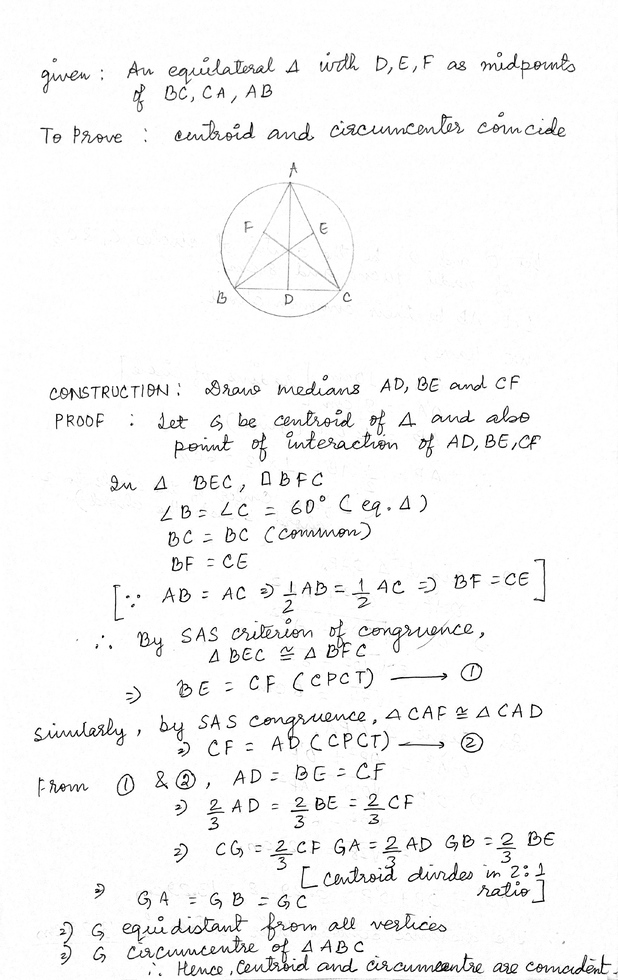 given : An equilateral Δ with D, E, F as midpoints
of BC, CA, AB
To Prove : centroid and circumcenter coincide
A
F E
B D C
CONSTRUCTION : Draw medians AD, BE and CF
PROOF : Let G be centroid of Δ and also
point of interaction of AD, BE, CF
In Δ BEC, Δ BFC
∠B = ∠C = 60° ( eq. Δ )
BC = BC (common)
BF = CE
[ ∵ AB = AC ⇒ 1/2 AB = 1/2 AC ⇒ BF = CE ]
∴ By SAS criterion of congruence,
Δ BEC ≅ Δ BFC
⇒ BE = CF (CPCT) ⟶ ①
Similarly, by SAS congruence, Δ CAF ≅ Δ CAD
⇒ CF = AD (CPCT) ⟶ ②
From ① & ②, AD = BE = CF
⇒ 2/3 AD = 2/3 BE = 2/3 CF
⇒ CG = 2/3 CF GA = 2/3 AD GB = 2/3 BE
[ centroid divides in 2:1
ratio ]
⇒ GA = GB = GC
⇒ G equidistant from all vertices
⇒ G circumcentre of Δ ABC
∴ Hence, centroid and circumcentre are coincident.